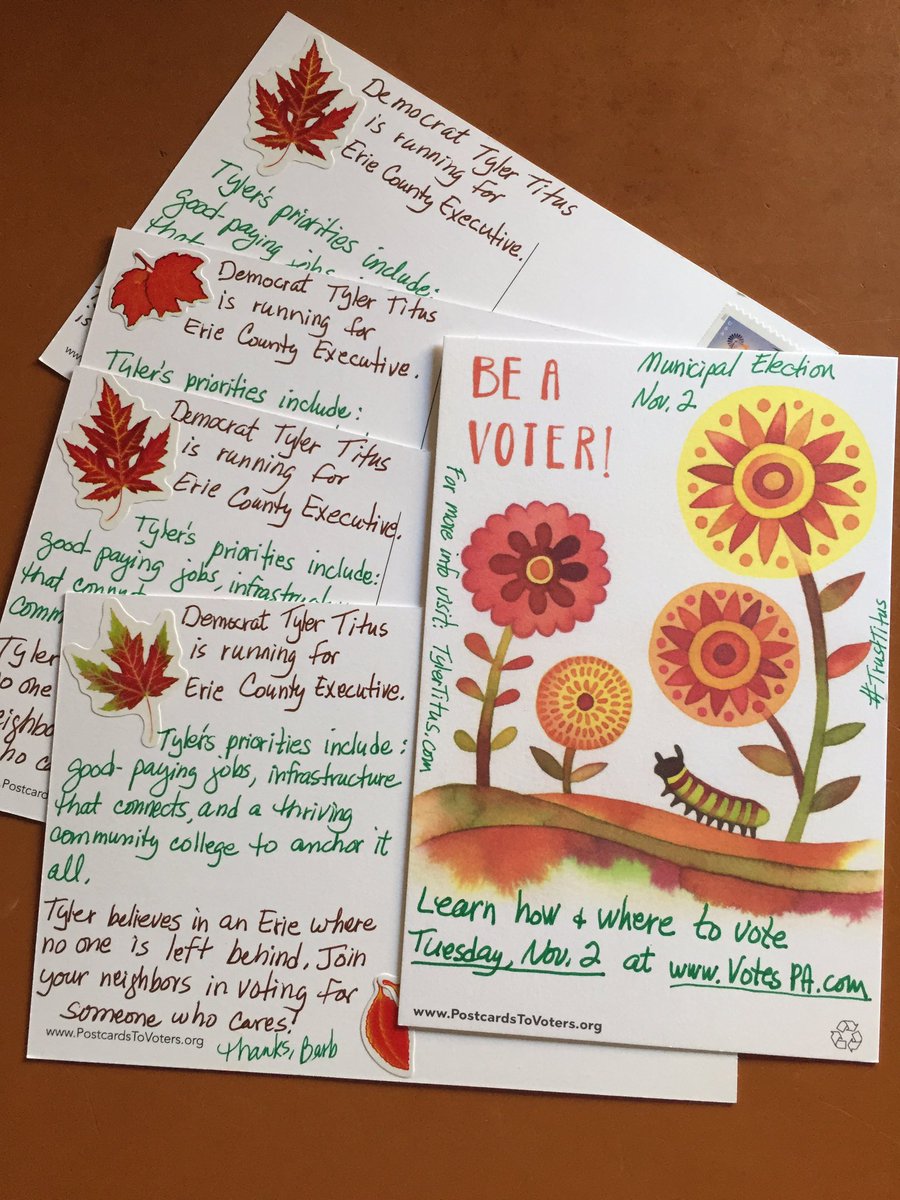 Democrat Tyler Titus
is running for
Erie County Executive.
Tyler's priorities include:
good-paying jobs,
that
is
www.
Democrat Tyler Titus
is running for
Erie County Executive.
Tyler's priorities include:
Democrat Tyler Titus
is running for
Erie County Executive.
Tyler's priorities include:
good-paying jobs, infrastructure
that connects
comm
Tyler
no one
neighbo
who ca
www.Postcards
Democrat Tyler Titus
is running for
Erie County Executive.
Tyler's priorities include:
good-paying jobs, infrastructure
that connects, and a thriving
community college to anchor it
all.
Tyler believes in an Erie where
no one is left behind. Join
your neighbors in voting for
someone who cares!
www.PostcardsToVoters.org
Thanks, Barb
BE A
VOTER!
Municipal Election
Nov. 2
For more info visit: TylerTitus.com
#TrustTitus
Learn how & where to vote
Tuesday, Nov. 2 at www.VotesPA.com
www.PostcardsToVoters.org